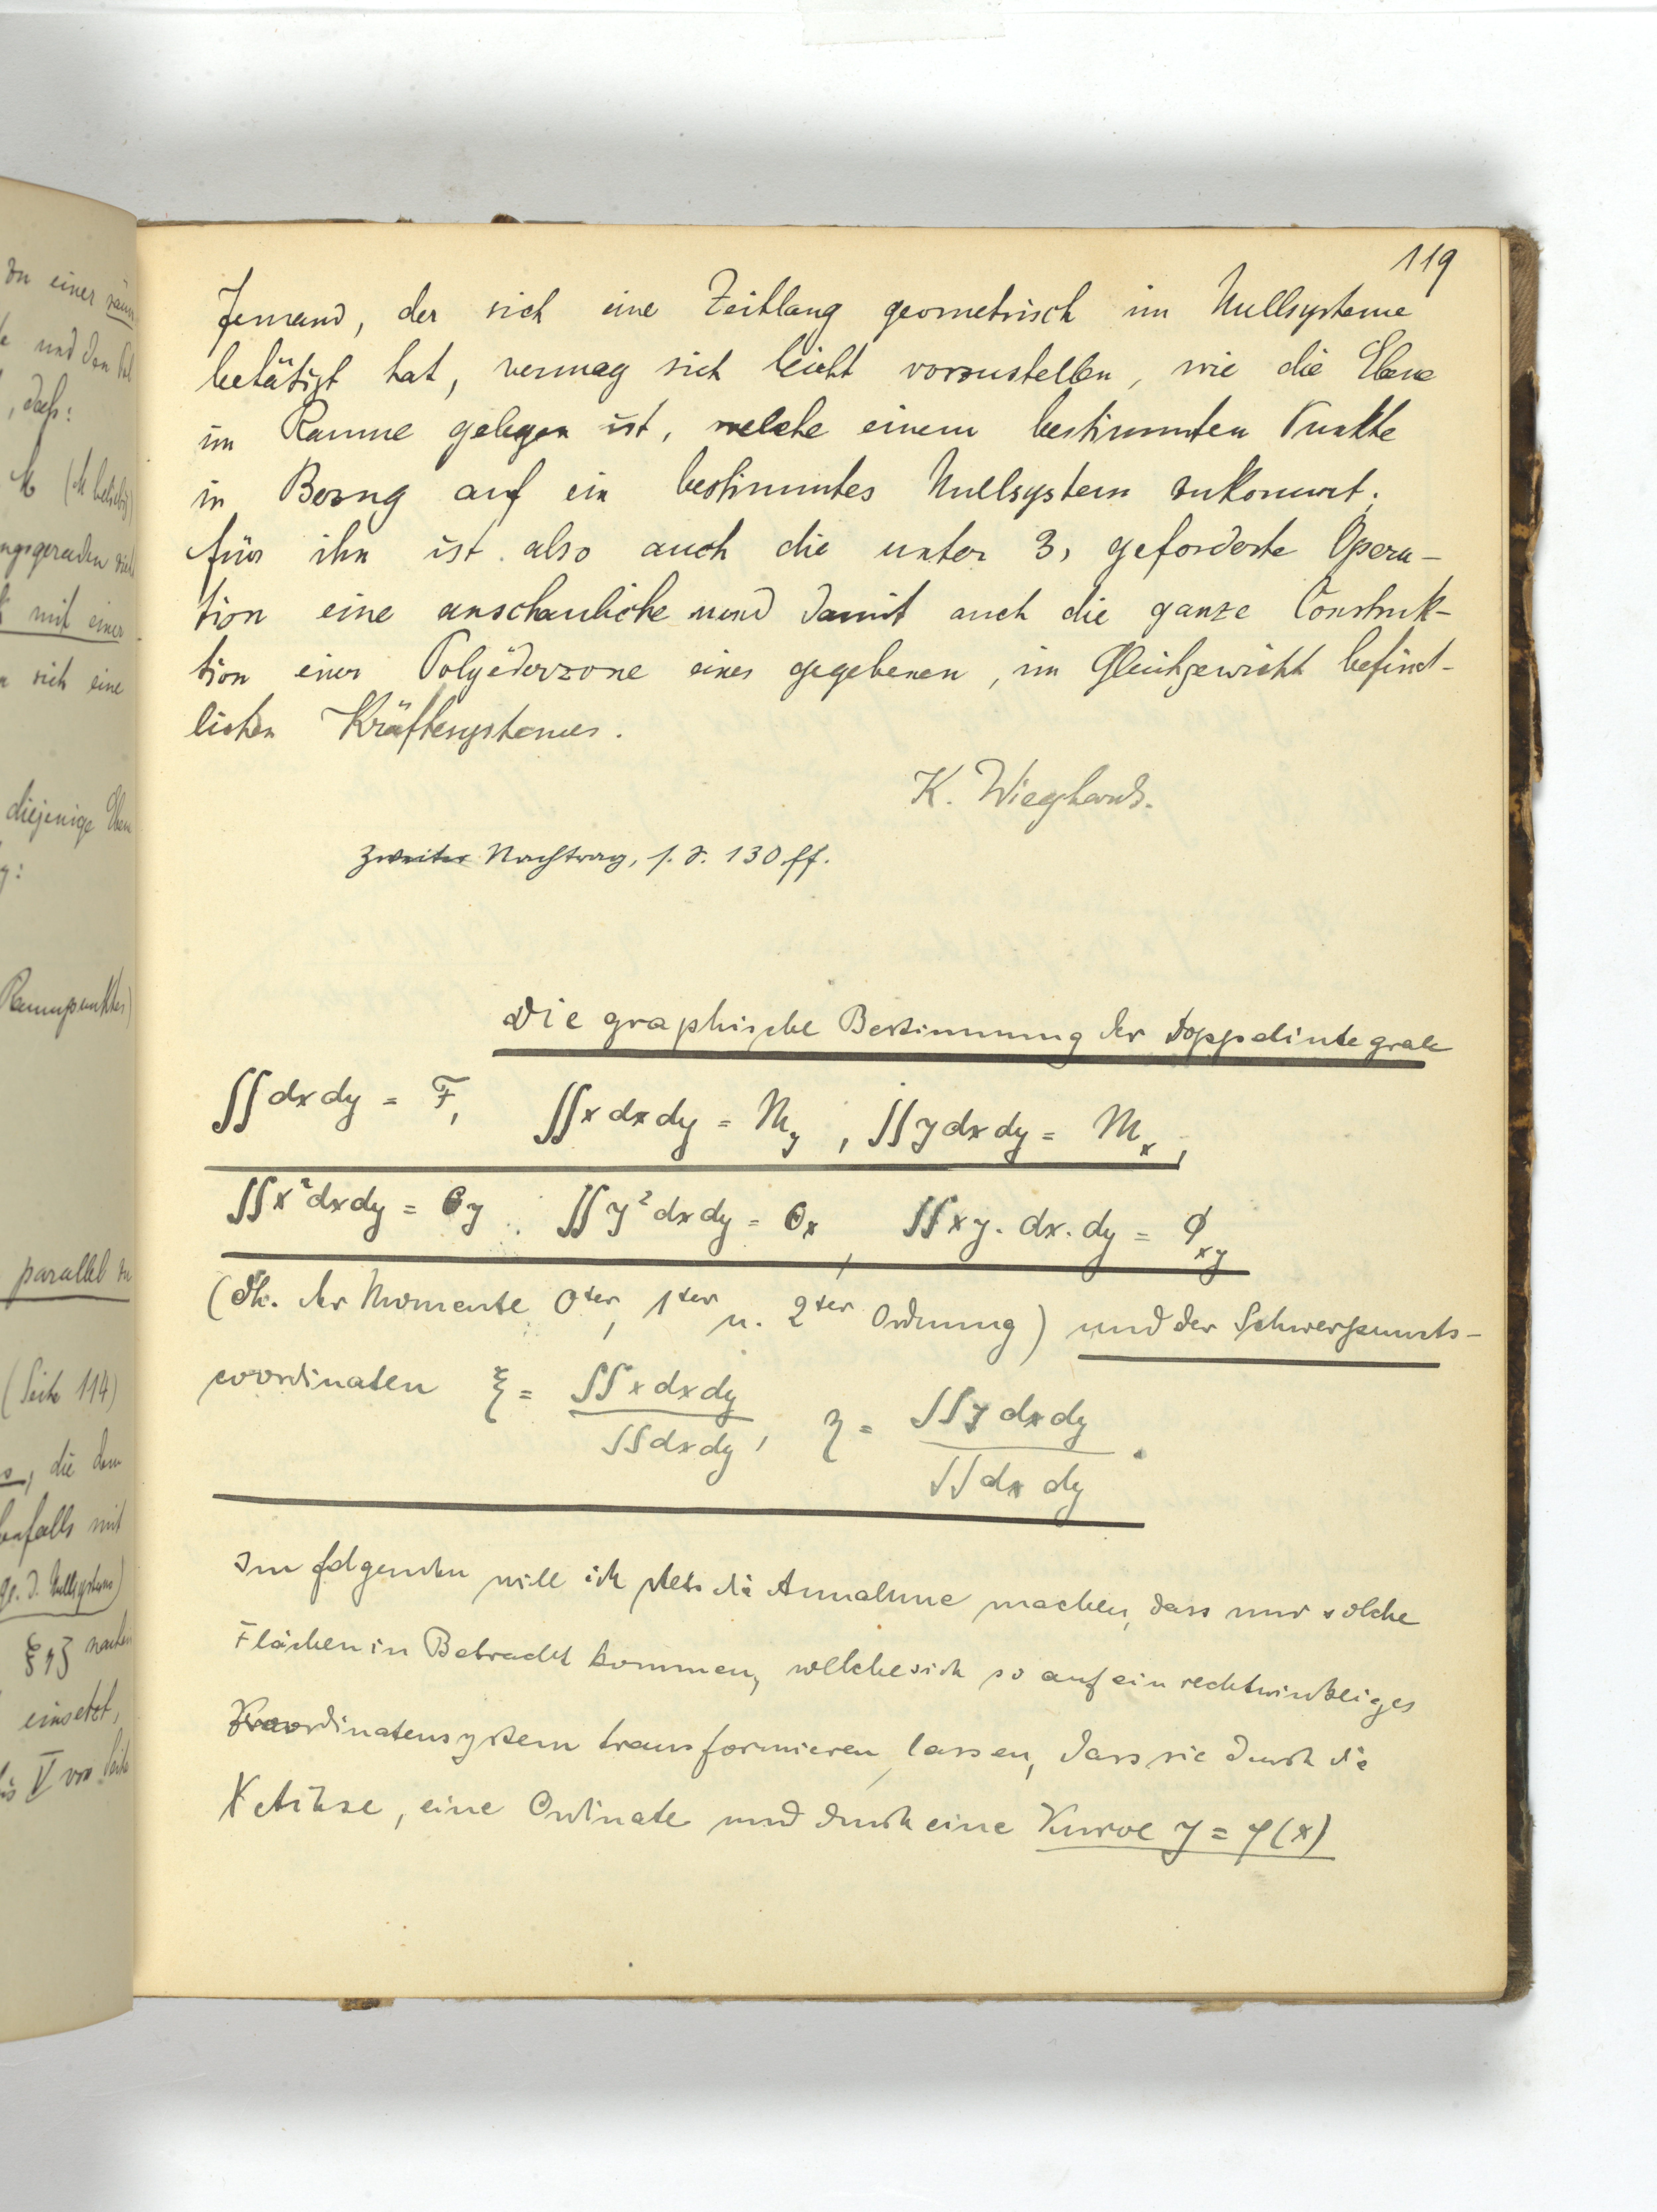 zu einer räum
und den
, daß:
M (M beliebig)
ngsgeraden
mit einer
sich eine
diejenige Eben
g:
Raumpunktes)
parallel zu
(Seite 114)
, die dem
benfalls mit
d. Nullsystems)
einsetzt,
V von Seite
119
Jemand, der sich eine Zeitlang geometrisch im Nullsysteme
betätigt hat, vermag sich leicht vorzustellen, wie die Ebene
im Raume gelegen ist, welche einem bestimmten Punkte
in Bezug auf ein bestimmtes Nullsystem zukommt;
für ihn ist also auch die unter 3, geforderte Opera-
tion eine anschauliche und damit auch die ganze Construk-
tion einer Polyëderzone eines gegebenen, im Gleichgewicht befind-
lichen Kräftesystemes.
K. Wieghardt.
Zweiter Nachtrag, s. S. 130 ff.
Die graphische Bestimmung der Doppelintegrale
∬ dx dy = F, ∬ x dx dy = M_y, ∬ y dx dy = M_x,
∬ x² dx dy = Θ_y, ∬ y² dx dy = Θ_x, ∬ xy. dx. dy = Φ_xy
(dh. der Momente 0ter, 1ter u. 2ter Ordnung) und der Schwerpunkts-
coordinaten ξ = ∬ x dx dy / ∬ dx dy, η = ∬ y dx dy / ∬ dx dy.
Im folgenden will ich stets die Annahme machen, dass nur solche
Flächen in Betracht kommen, welche sich so auf ein rechtwinkliges
Koordinatensystem transformieren lassen, dass sie durch die
X Achse, eine Ordinate und durch eine Kurve y = φ(x)